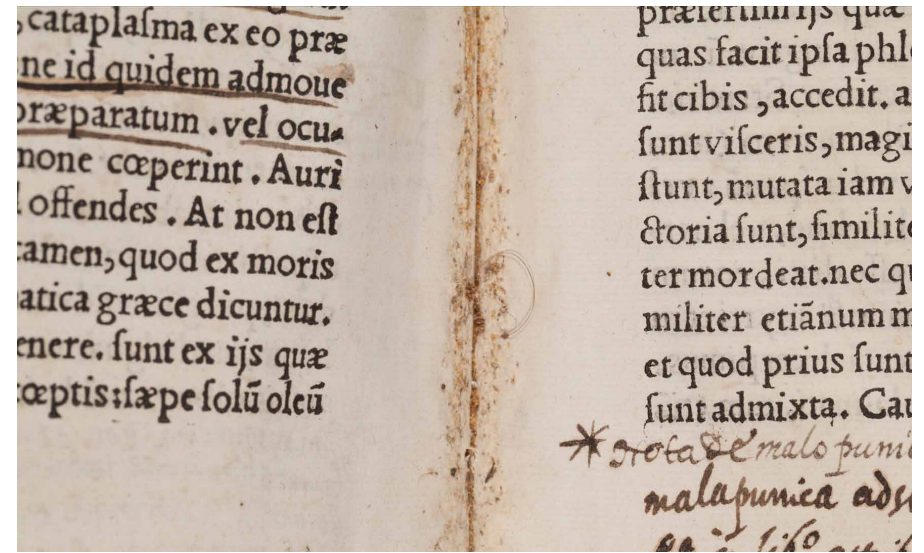 cataplaſma ex eo præ
ne id quidem admoue
præparatum . vel ocu
mone cœperint . Auri
offendes . At non eſt
tamen, quod ex moris
atica græce dicuntur.
enere. ſunt ex ijs quæ
cœptis: ſæpe ſolū oleū
præſertim ijs quæ
quas facit ipſa phle
fit cibis , accedit. a
ſunt viſceris, magi
ſtunt, mutata iam v
ctoria ſunt, ſimilite
ter mordeat. nec qu
militer etiānum m
et quod prius ſunt
ſunt admixta. Cau
* Nota de malo puni
mala punica ads